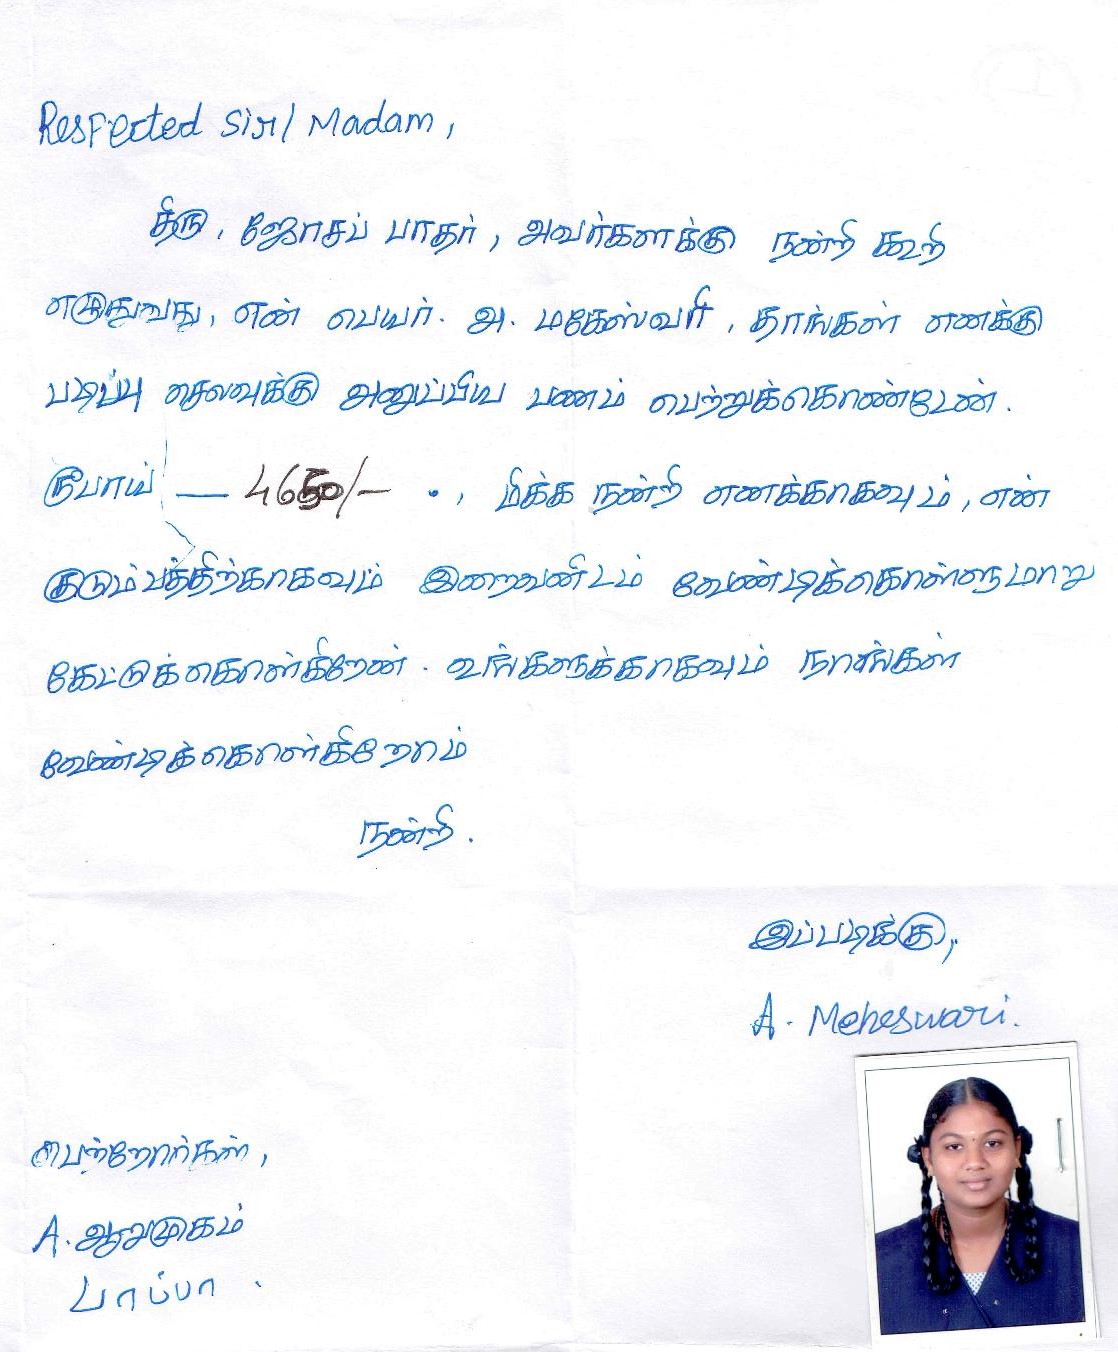 Respected Sir/ Madam,
திரு. ஜோசப் பாதர், அவர்களக்கு நன்றி கூறி
எழுதுவது, என் பெயர். அ. மகேஸ்வரி, தாங்கள் எனக்கு
படிப்பு செலவுக்கு அனுப்பிய பணம் பெற்றுக்கொண்டேன்.
ரூபாய் — 4650/- ., மிக்க நன்றி எனக்காகவும், என்
குடும்பத்திற்காகவும் இறைவனிடம் வேண்டிக்கொள்ளுமாறு
கேட்டுக்கொள்கிறேன். உங்களுக்காகவும் நாங்கள்
வேண்டிக்கொள்கிறோம்
நன்றி.
இப்படிக்கு,
A. Meheswari.
பெற்றோர்கள்,
A. ஆறுமுகம்
பாப்பா.